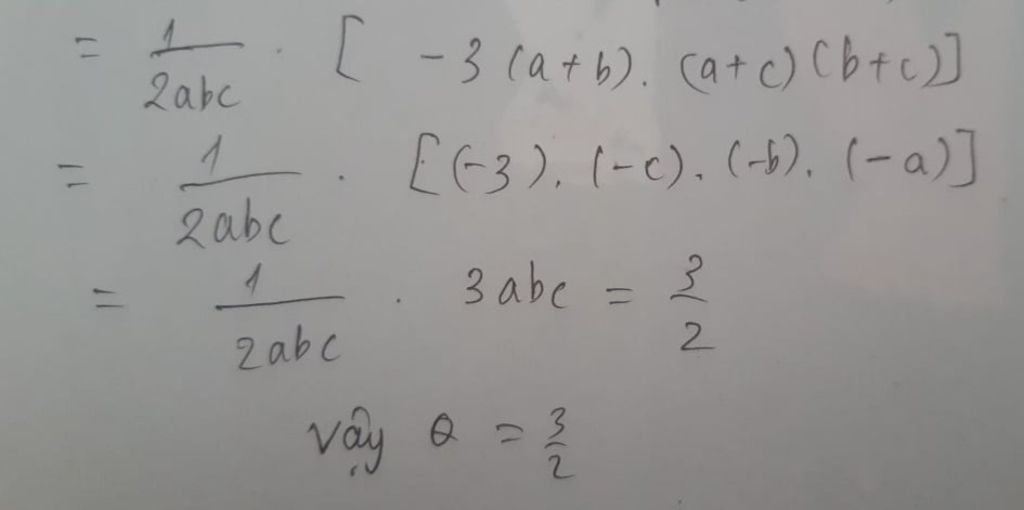 = 1/2abc . [ -3 (a+b). (a+c)(b+c)]
= 1/2abc . [(-3). (-c). (-b). (-a)]
= 1/2abc . 3abc = 3/2
Vậy Q = 3/2